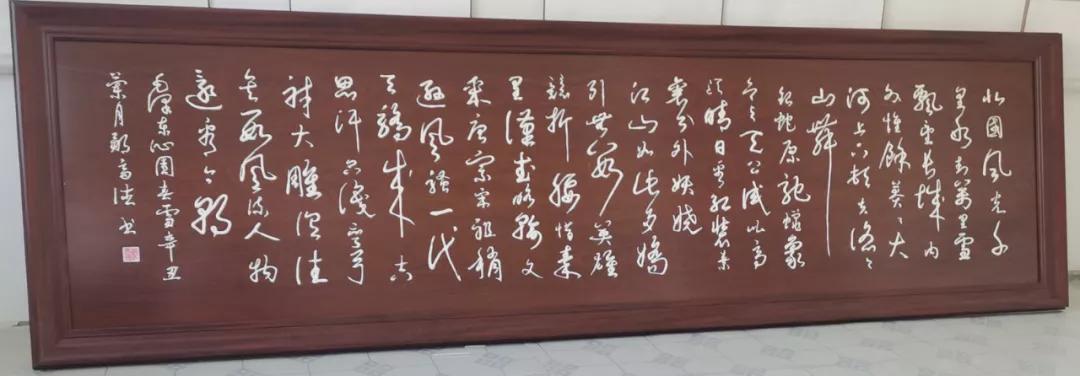 北國風光千
里冰封萬里雪
飄望長城內
外惟餘莽〻大
河上下頓失滔〻
山舞
銀蛇原馳蠟象
欲与天公試比高
須晴日看紅裝素
裹分外妖嬈
江山如此多嬌
引無數英雄
競折腰惜秦
皇漢武略輸文
采唐宗宋祖稍
遜風騷一代
天驕成吉
思汗只識彎弓
射大雕俱往
矣數風流人物
還看今朝
毛澤東沁園春雪辛丑
月鄭書